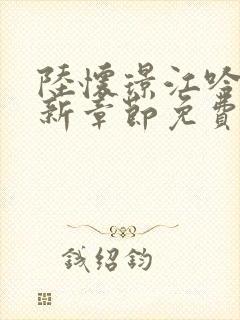 陸懷璟江晗
新章節免費
錢紹鈞